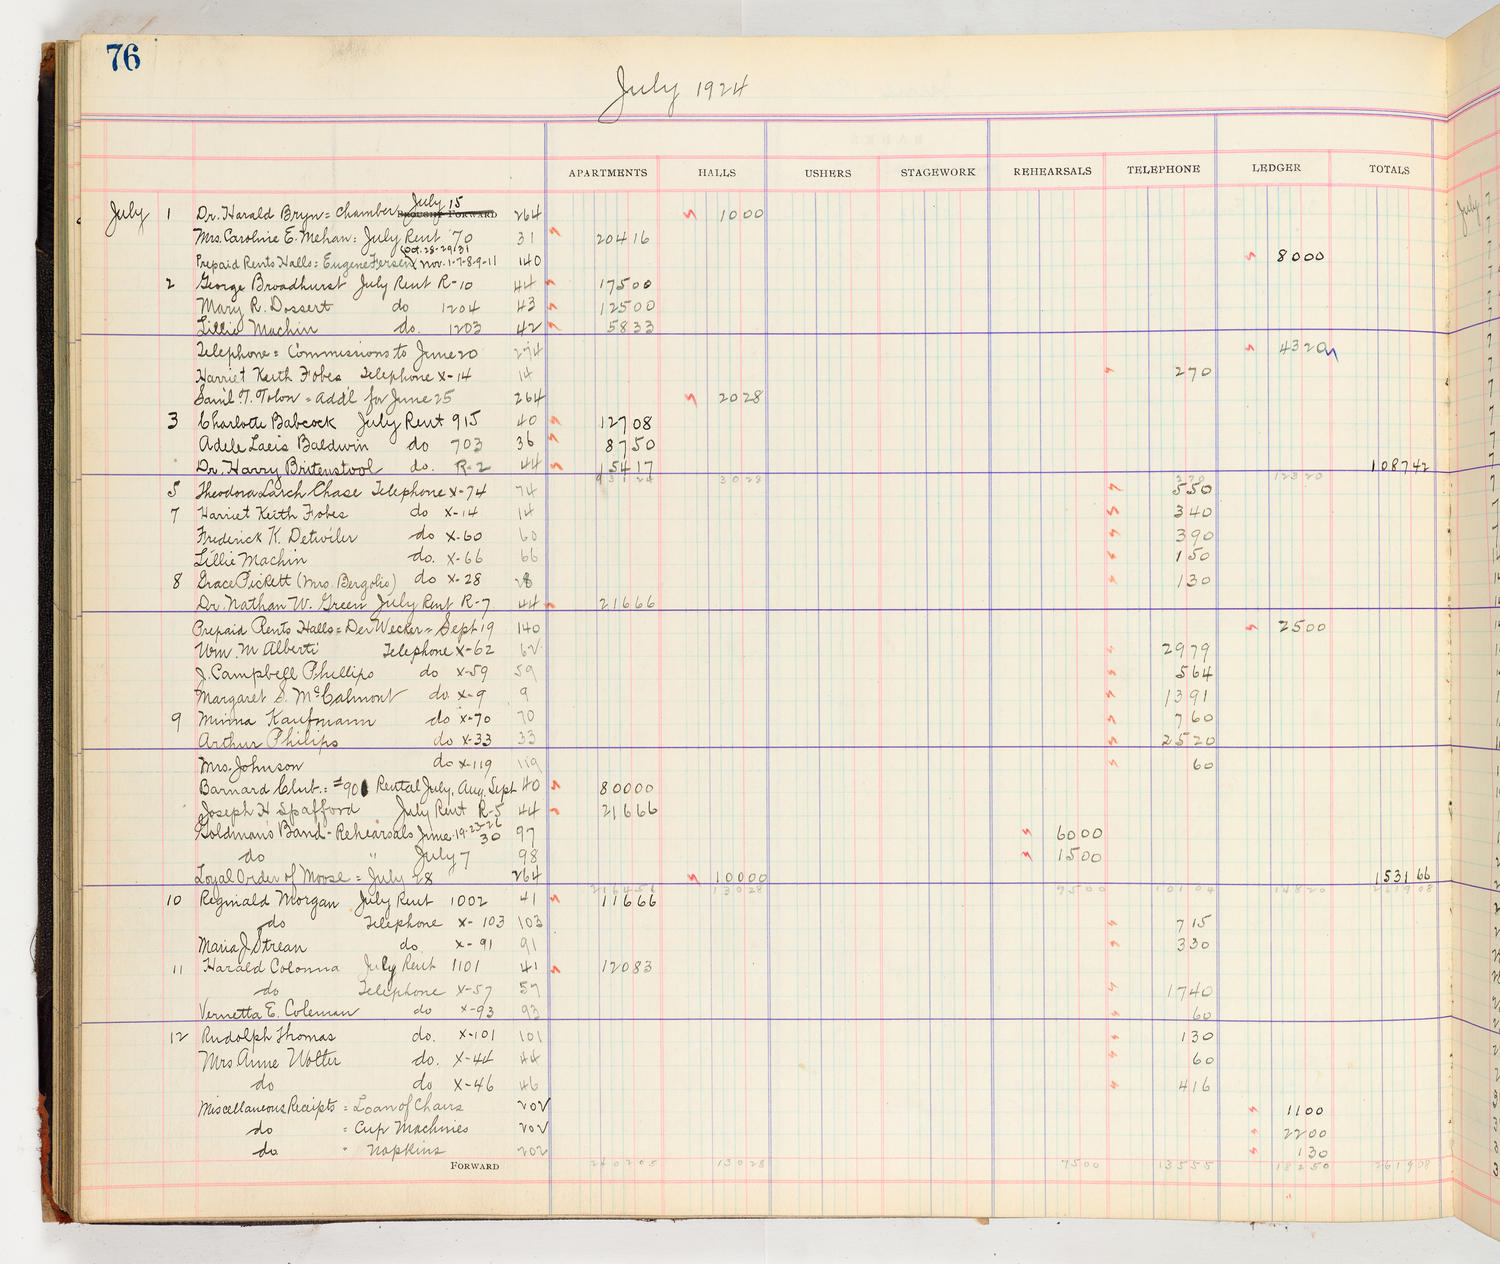 76
July 1924
APARTMENTS HALLS USHERS STAGEWORK REHEARSALS TELEPHONE LEDGER TOTALS
July 15
July 1 Dr. Harald Bryn = Chamber BROUGHT FORWARD 264 1000
Mrs. Caroline E. Mehan: July Rent 70 31 20416
Oct. 28-29-31
Prepaid Rents Halls = Eugene Fersen Nov. 1-7-8-9-11 140 8000
2 George Broadhurst July Rent R-10 44 17500
Mary R. Dossert do 1204 43 12500
Lillie Machin do. 1203 42 5833
Telephone = Commissions to June 20 274 4320
Harriet Keith Fobes Telephone X-14 14 270
Saml. T. Tolon = Add'l for June 25 264 2028
3 Charlotte Babcock July Rent 915 40 12708
Adele Laeis Baldwin do 703 36 8750
Dr. Harry Britenstool do. R-2 44 15417 108742
93124 3028 270 12320
5 Theodora Larch Chase Telephone X-74 74 550
7 Harriet Keith Fobes do X-14 14 340
Frederick K. Detwiler do X-60 60 390
Lillie Machin do. X-66 66 150
8 Grace Pickett (Mrs. Bergolio) do X-28 28 130
Dr. Nathan W. Green July Rent R-7 44 21666
Prepaid Rents Halls = Der Wecker = Sept 19 140 2500
Wm. M Alberti Telephone X-62 62 2979
J. Campbell Phillips do X-59 59 564
Margaret S. McCalmont do. X-9 9 1391
9 Minna Kaufmann do X-70 70 760
Arthur Philips do X-33 33 2520
Mrs. Johnson do X-119 119 60
Barnard Club.: #901 Rental July, Aug. Sept 40 80000
Joseph H Spafford July Rent R-5 44 21666
Goldman's Band - Rehearsals June 19-23-26 30 97 6000
do " July 7 98 1500
Loyal Order of Moose = July 28 264 10000 153166
216456 13028 7500 10104 14820 261908
10 Reginald Morgan July Rent 1002 41 11666
do Telephone X-103 103 715
Maria J. Strean do X-91 91 330
11 Harald Colonna July Rent 1101 41 12083
do Telephone X-57 57 1740
Vernetta E. Coleman do X-93 93 60
12 Rudolph Thomas do. X-101 101 130
Mrs Anne Wolter do. X-44 44 60
do do X-46 46 416
Miscellaneous Receipts = Loan of Chairs 202 1100
do = Cup Machines 202 2200
do " Napkins 202 130
FORWARD 240205 13028 7500 13555 18250 261908